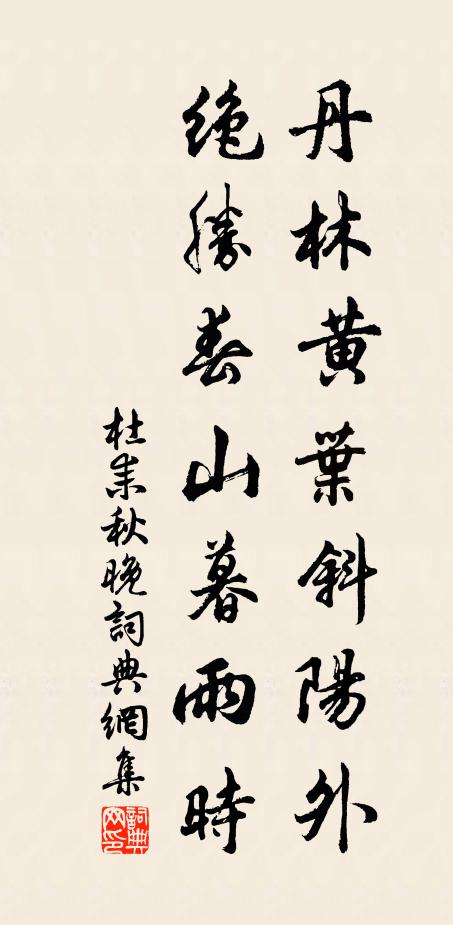 丹林黄葉斜陽外
絶勝春山暮雨時
杜耒秋晚詞典網集
詞典網印